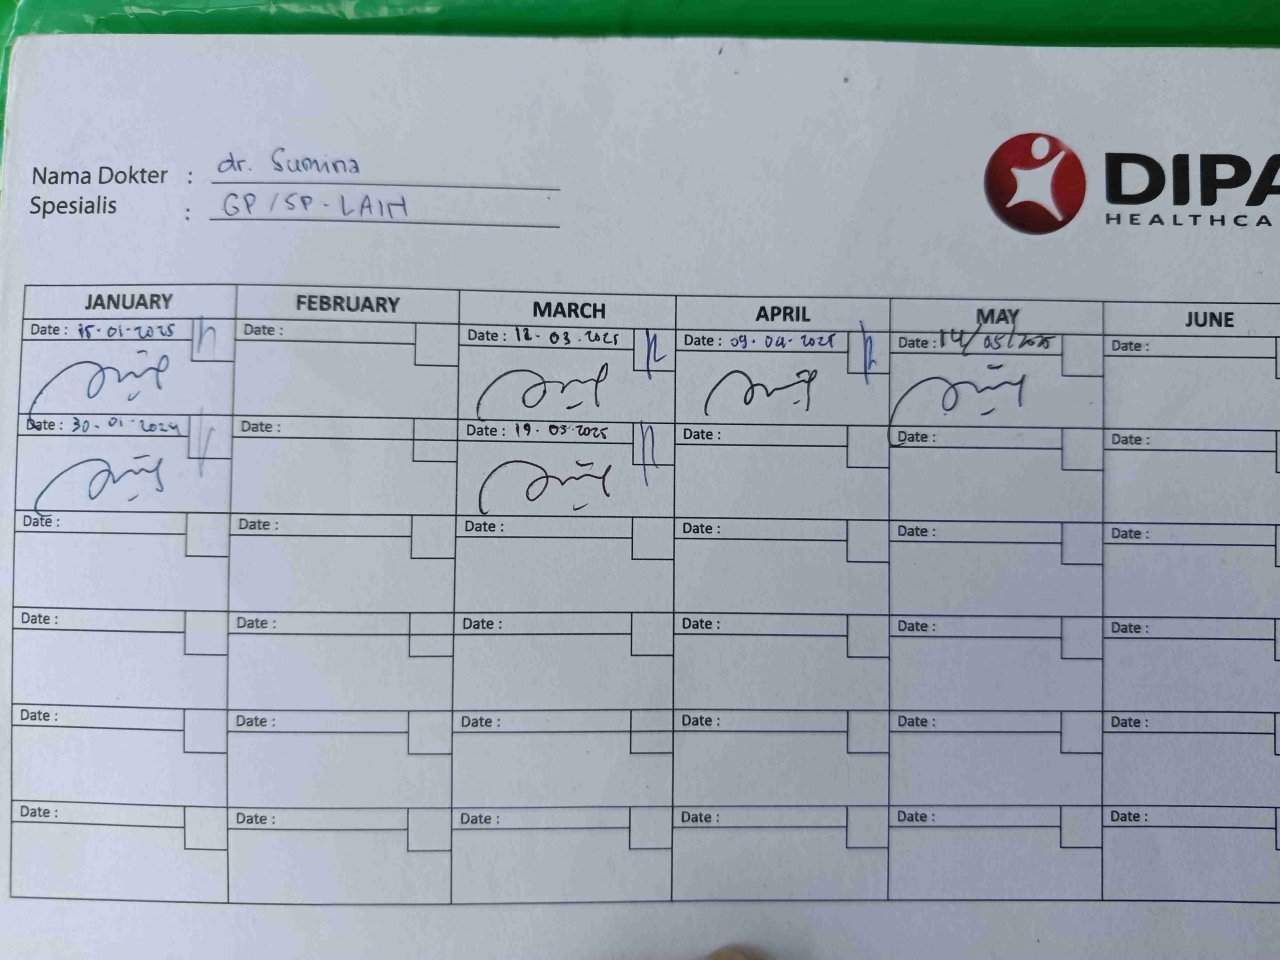 Nama Dokter : dr. Sumina
Spesialis : GP / SP - LAIN
DIPA
HEALTHCA
JANUARY FEBRUARY MARCH APRIL MAY JUNE
Date : 15-01-2025 Date : Date : 12-03-2025 Date : 09-04-2025 Date : 14/05/2025 Date :
Date : 30-01-2024 Date : Date : 19-03-2025 Date : Date : Date :
Date : Date : Date : Date : Date : Date :
Date : Date : Date : Date : Date : Date :
Date : Date : Date : Date : Date : Date :
Date : Date : Date : Date : Date : Date :